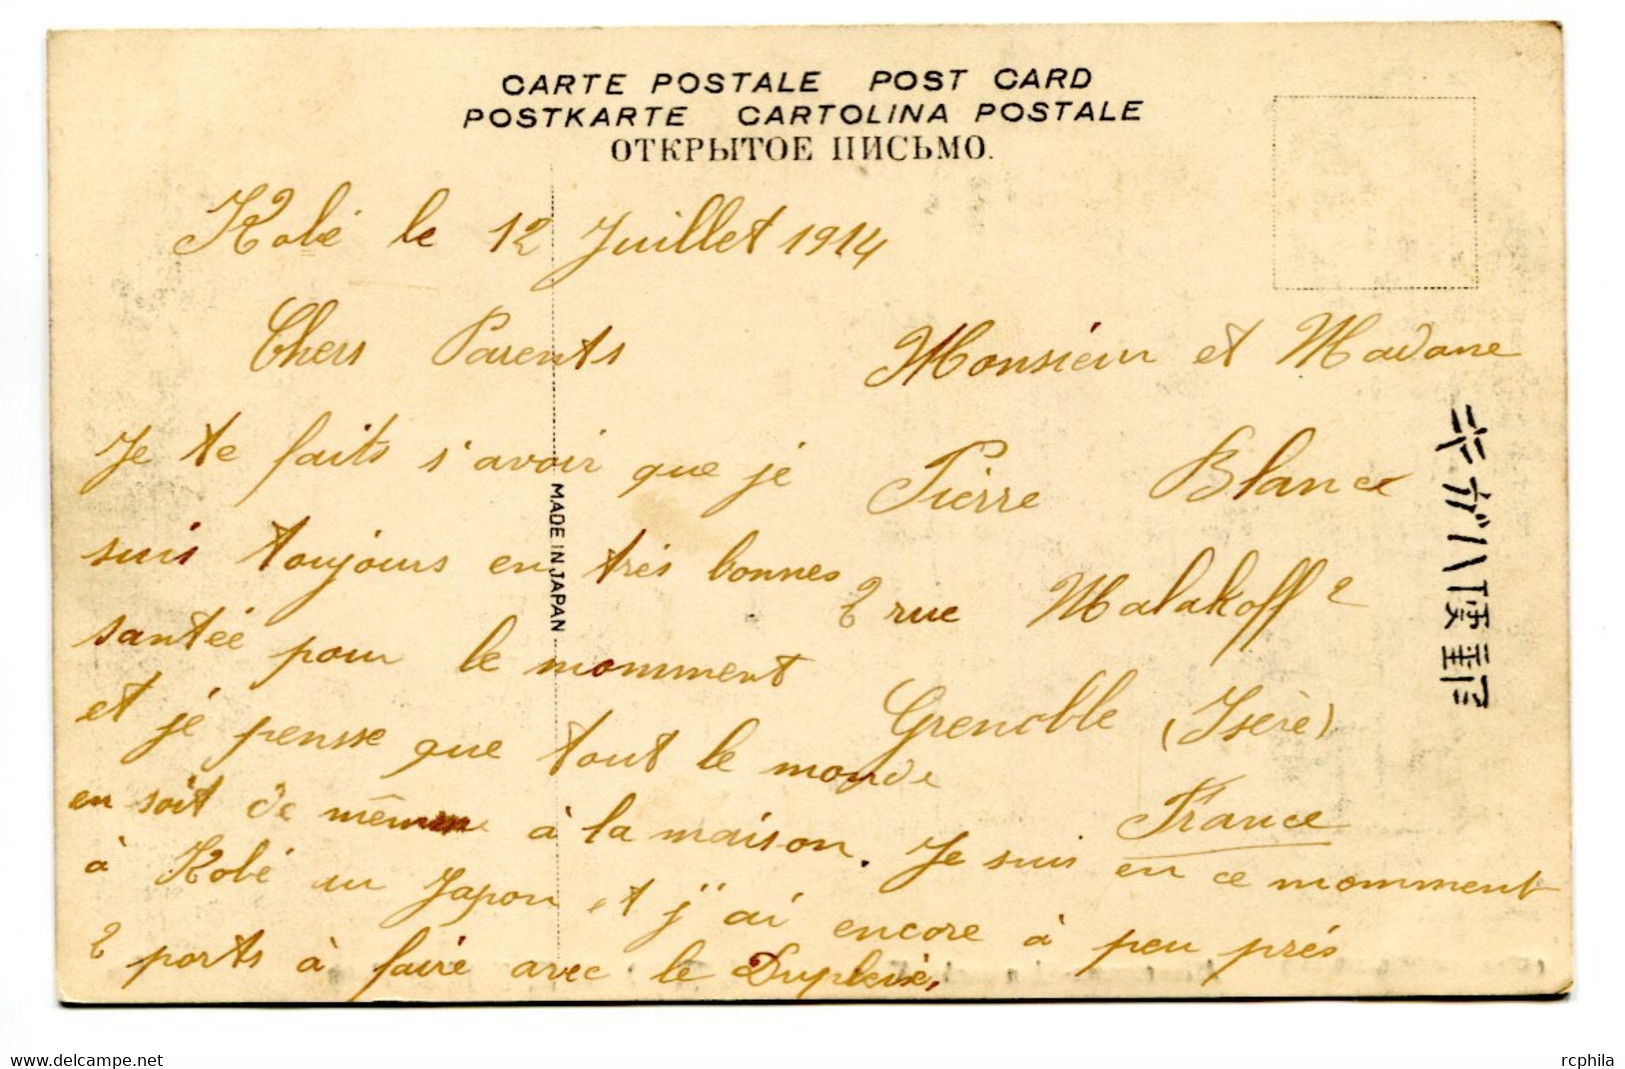 CARTE POSTALE POST CARD
POSTKARTE CARTOLINA POSTALE
ОТКРЫТОЕ ПИСЬМО.
Kobé le 12 Juillet 1914
Chers Parents
Je te faits s'avoir que je
suis toujours en très bonnes
santée pour le momment
et je pensse que tout le monde
en soit de même à la maison. Je suis en ce momment
à Kobé au Japon et j'ai encore à peu près
2 ports à faire avec le Dupleix.
Monsieur et Madame
Pierre Blanc
2 rue Malakoff 2
Grenoble (Isère)
France
MADE IN JAPAN
郵便ハガキ
delcampe.net
rcphila